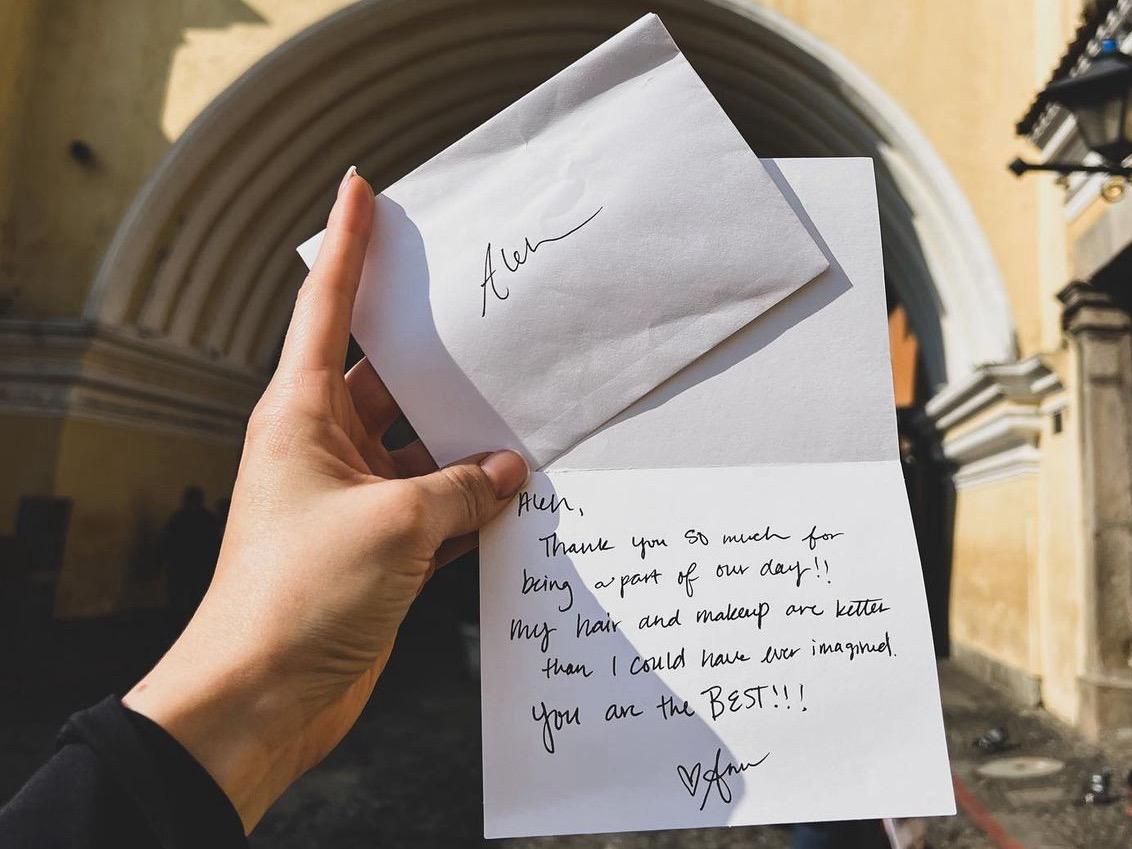 Aleh
Aleh,
Thank you so much for
being a part of our day!!
My hair and makeup are better
than I could have ever imagined.
You are the BEST!!!
♡